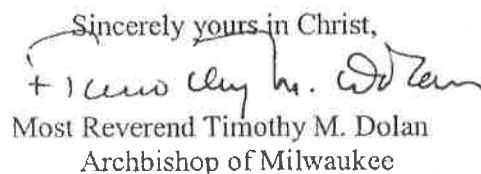 Sincerely yours in Christ,
+ Timothy M. Dolan
Most Reverend Timothy M. Dolan
Archbishop of Milwaukee